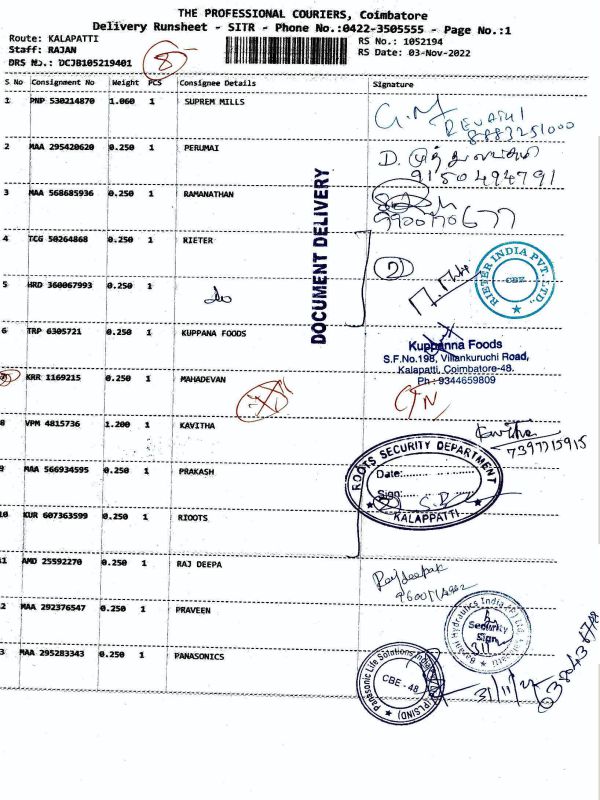 THE PROFESSIONAL COURIERS, Coimbatore
Delivery Runsheet - SITR - Phone No.:0422-3505555 - Page No.:1
Route: KALAPATTI
Staff: RAJAN
DRS No.: DCJB105219401
8
RS No.: 1052194
RS Date: 03-Nov-2022
S No Consignment No Weight PCS Consignee Details Signature
1 PNP 530214870 1.060 1 SUPREM MILLS
G.M
REVATHI
8883251000
2 MAA 295420620 0.250 1 PERUMAI
9150494791
3 MAA 568685936 0.250 1 RAMANATHAN
DOCUMENT DELIVERY
4 TCG 50264868 0.250 1 RIETER
2
RIETER INDIA PVT. LTD.,
CBE
5 HRD 360067993 0.250 1 do
6 TRP 6305721 0.250 1 KUPPANA FOODS
Kuppanna Foods
S.F.No.198, Villankuruchi Road,
Kalapatti, Coimbatore-48.
Ph : 9344659809
KRR 1169215 0.250 1 MAHADEVAN
8 VPM 4815736 1.200 1 KAVITHA
Kavitha
7397715915
9 MAA 566934595 0.250 1 PRAKASH
ROOTS SECURITY DEPARTMENT
Date:
Sign:
KALAPPATTI
10 KUR 607363599 0.250 1 RIOOTS
11 AMD 25592270 0.250 1 RAJ DEEPA
Rajdeepak
2 MAA 292376547 0.250 1 PRAVEEN
Security
Sign
3 MAA 295283343 0.250 1 PANASONICS
Panasonic Life Solutions
CBE - 48